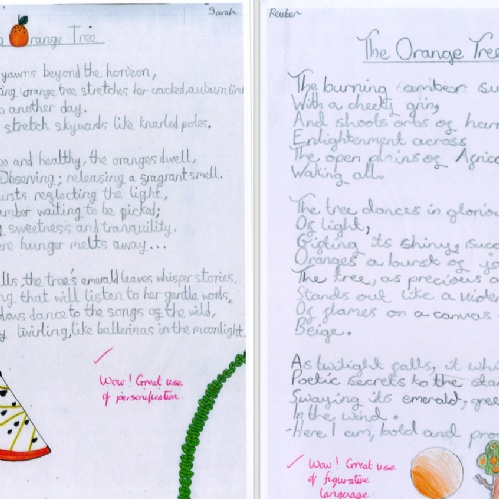 Sarah
Orange Tree
yawns beyond the horizon,
orange tree stretches her cracked, auburn
another day.
stretch skywards like knarled poles.
and healthy, the oranges dwell,
Observing; releasing a fragrant smell.
reflecting the light,
waiting to be picked;
sweetness and tranquility.
hunger melts away...
the tree's emerald leaves whisper stories,
that will listen to her gentle words.
dance to the songs of the wild,
twirling, like ballerinas in the moonlight.
Wow! Great use
of personification.
Reuben
The Orange Tree
The burning amber su
With a cheeky grin,
And shoots orbs of
Enlightenment across
The open plains of
Waking all.
The tree dances in glorio
Of light,
Gifting its shiny, suc
Oranges a burst of jo
The tree, as precious a
Stands out like a
Of flames on a canvas
Beige.
As twilight falls, it whi
Poetic secrets to the sta
Swaying its emerald-gree
In the wind.
-Here I am, bold and pro
Wow! Great use
of figurative
language